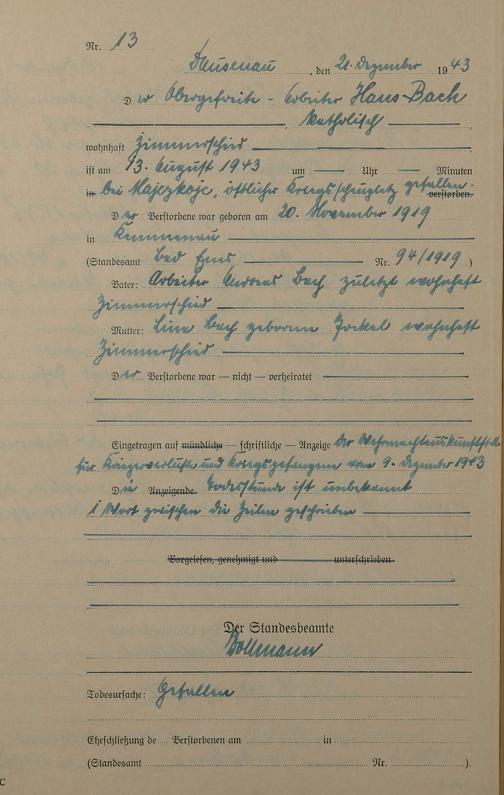 Nr. 13
Dausenau, den 21. Dezember 1943
Der Obergefreite - Arbeiter Hans Bach
, katholisch
wohnhaft Zimmerschied
ist am 13. August 1943 um — Uhr — Minuten
in bei östlicher Kriegsschauplatz gefallen. verstorben.
Der Verstorbene war geboren am 20. November 1919
in Kemmenau
(Standesamt Bad Ems Nr. 94/1919)
Vater: Arbeiter Andreas Bach zuletzt wohnhaft
Zimmerschied
Mutter: Line Bach geborene wohnhaft
Zimmerschied
Der Verstorbene war — nicht — verheiratet
Eingetragen auf mündliche — schriftliche — Anzeige der Wehrmachtauskunftstelle
für Kriegerverluste und Kriegsgefangene vom 9. Dezember 1943
Die Anzeigende. Todesstunde ist unbekannt
1 Wort zwischen die Zeilen geschrieben
Vorgelesen, genehmigt und unterschrieben
Der Standesbeamte
Bollmann
Todesursache: Gefallen
Eheschließung de Verstorbenen am in
(Standesamt Nr. ).
C